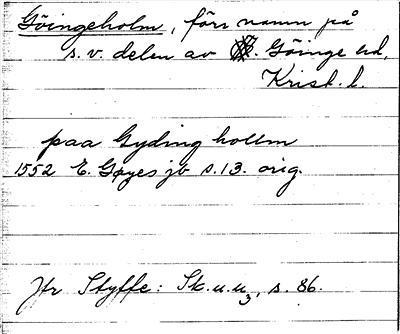 Göingeholm, förr namn på
s.v. delen av V. Göinge hd,
Krist. l.
paa Gyding hollm
1552 E. Gøyes jb s. 13. orig.
Jfr Styffe: Sk.u.u₃, s. 86.